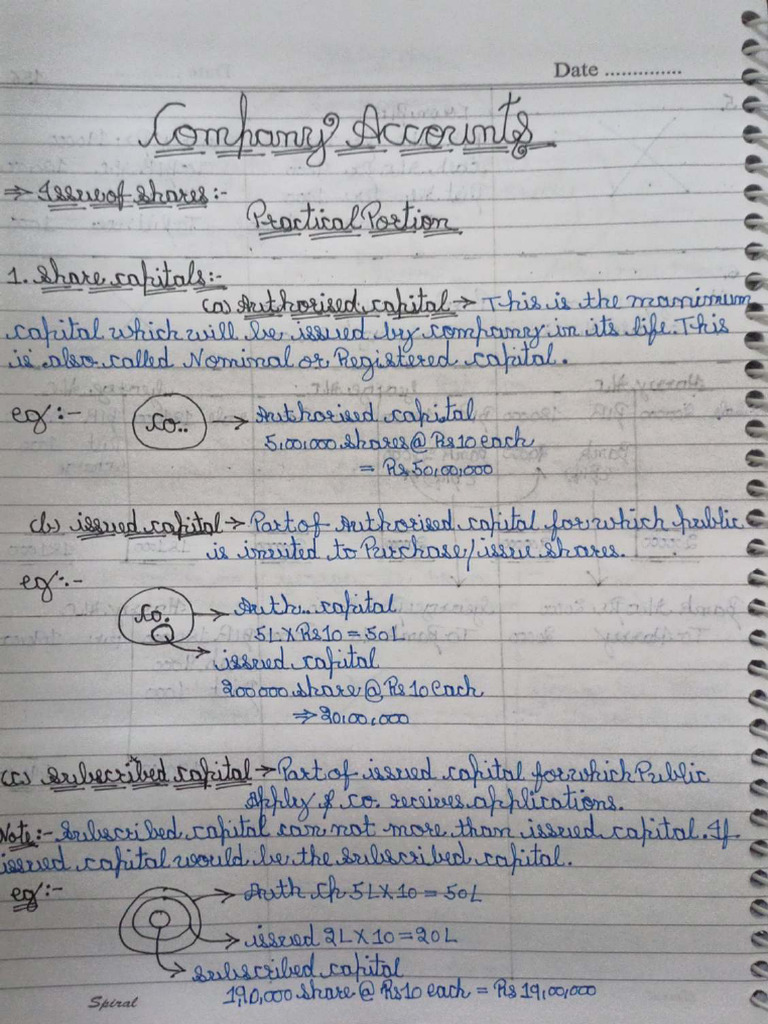 Date ..............
Company Accounts
⇒ Issue of shares:-
Practical Portion
1. Share capitals:-
(a) Authorised capital → This is the manimum
capital which will be issued by company in its life. This
is also called Nominal or Registered capital.
eg:- co.. → Authorised capital
5,00,000 shares @ Rs 10 each
= Rs 50,00,000
(b) issued capital → Part of Authorised capital for which public
is invited to Purchase/issue shares.
eg:-
co. → Auth.. capital
5L X Rs 10 = 50L
issued capital
200000 share @ Rs 10 each
⇒ 20,00,000
(c) subscribed capital → Part of issued capital for which Public
Apply & co. receives applications.
Note:- Subscribed capital can not more than issued capital. If
issued capital would be the subscribed capital.
eg:- → Auth Ch 5L X 10 = 50L
→ issued 2L X 10 = 20L
→ subscribed capital
1,90,000 share @ Rs 10 each = Rs 19,00,000
Spiral